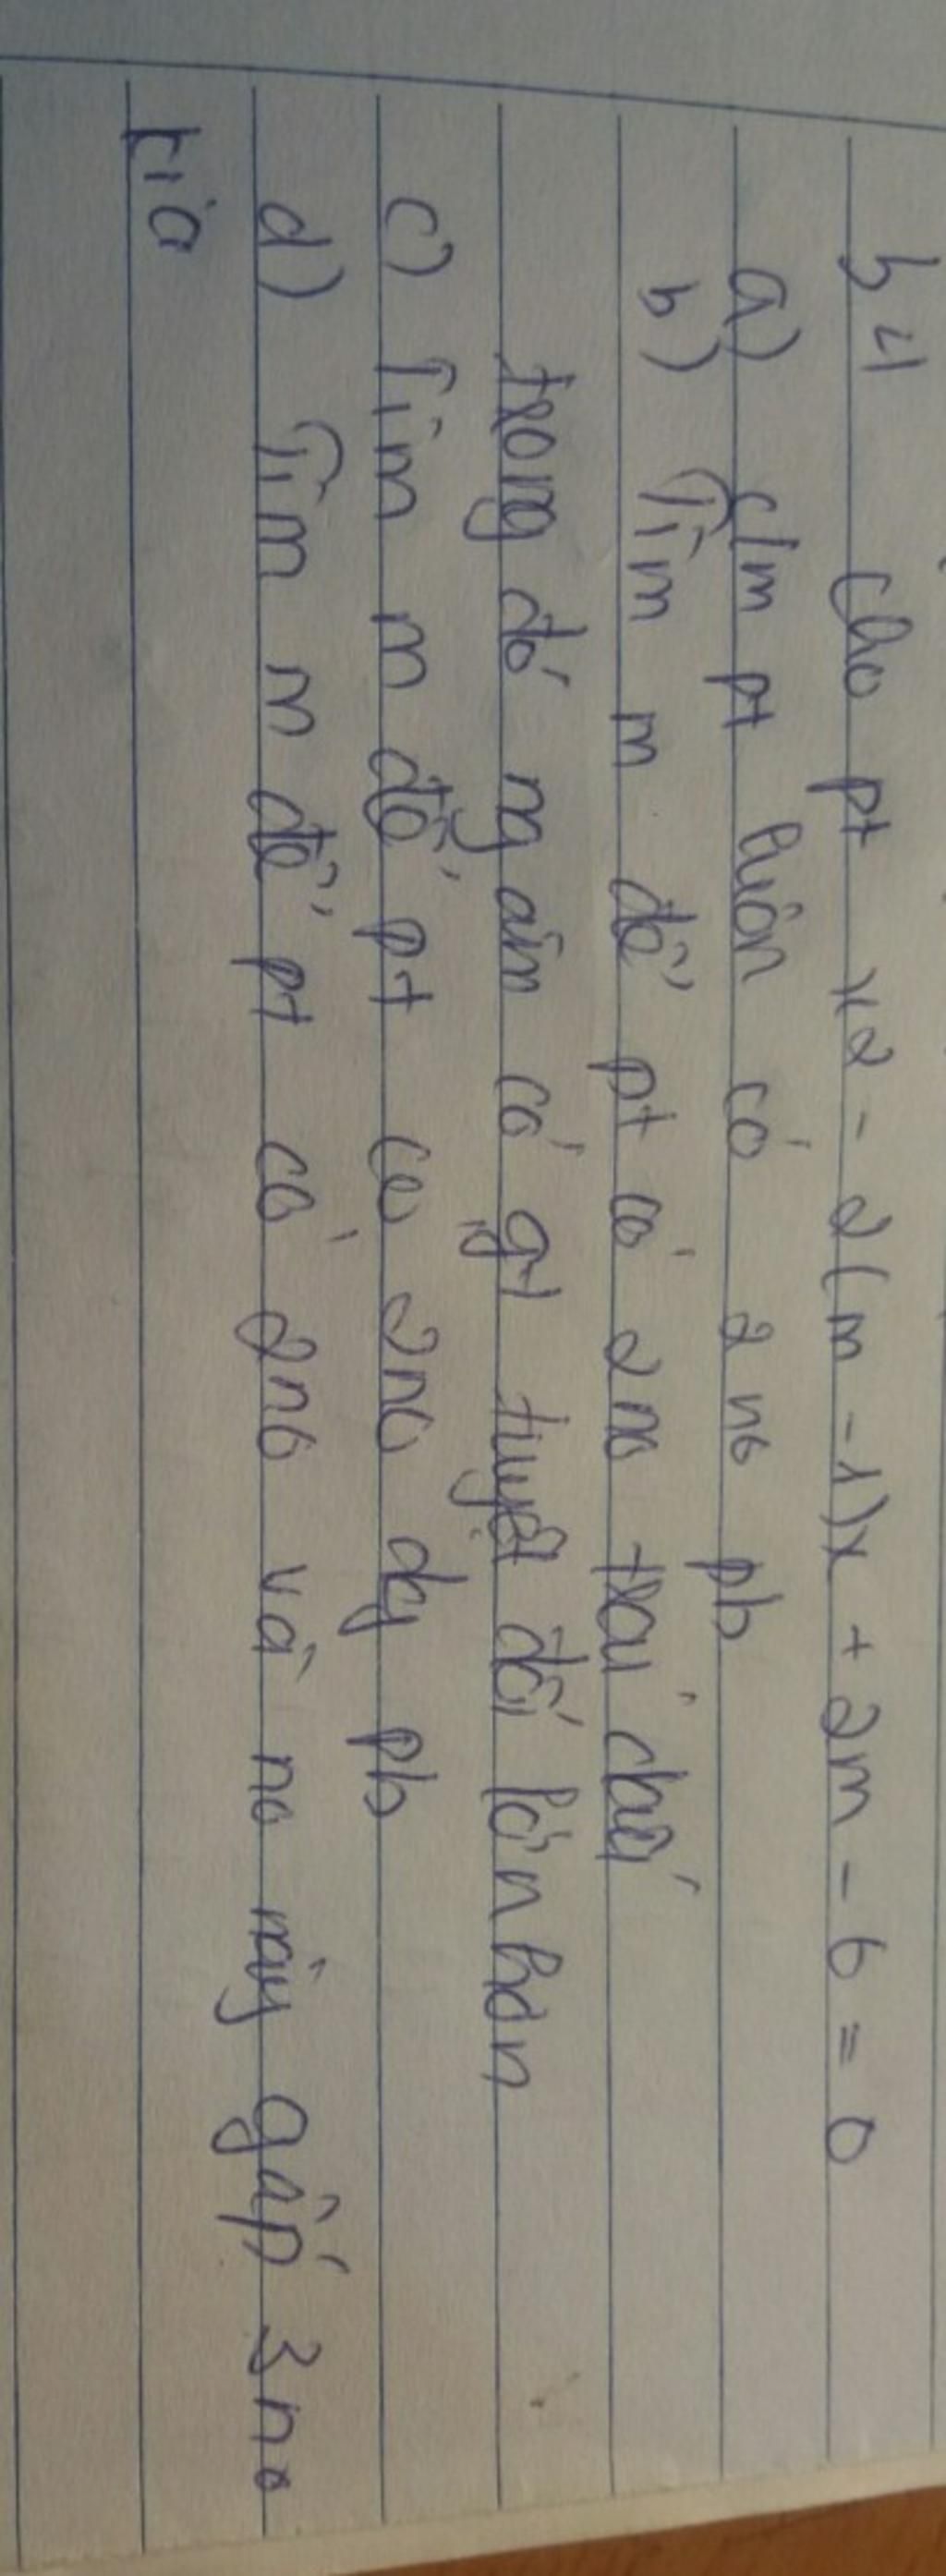 b4 Cho pt x2 - 2(m-1)x + 2m - 6 = 0
a) c/m pt luôn có 2 no pb
b) Tìm m để pt có 2 no trái dấu
trong đó ng âm có gt tuyệt đối lớn hơn
c) Tìm m để pt có 2no dg pb
d) Tìm m để pt có 2no và no này gấp 3 no
kia